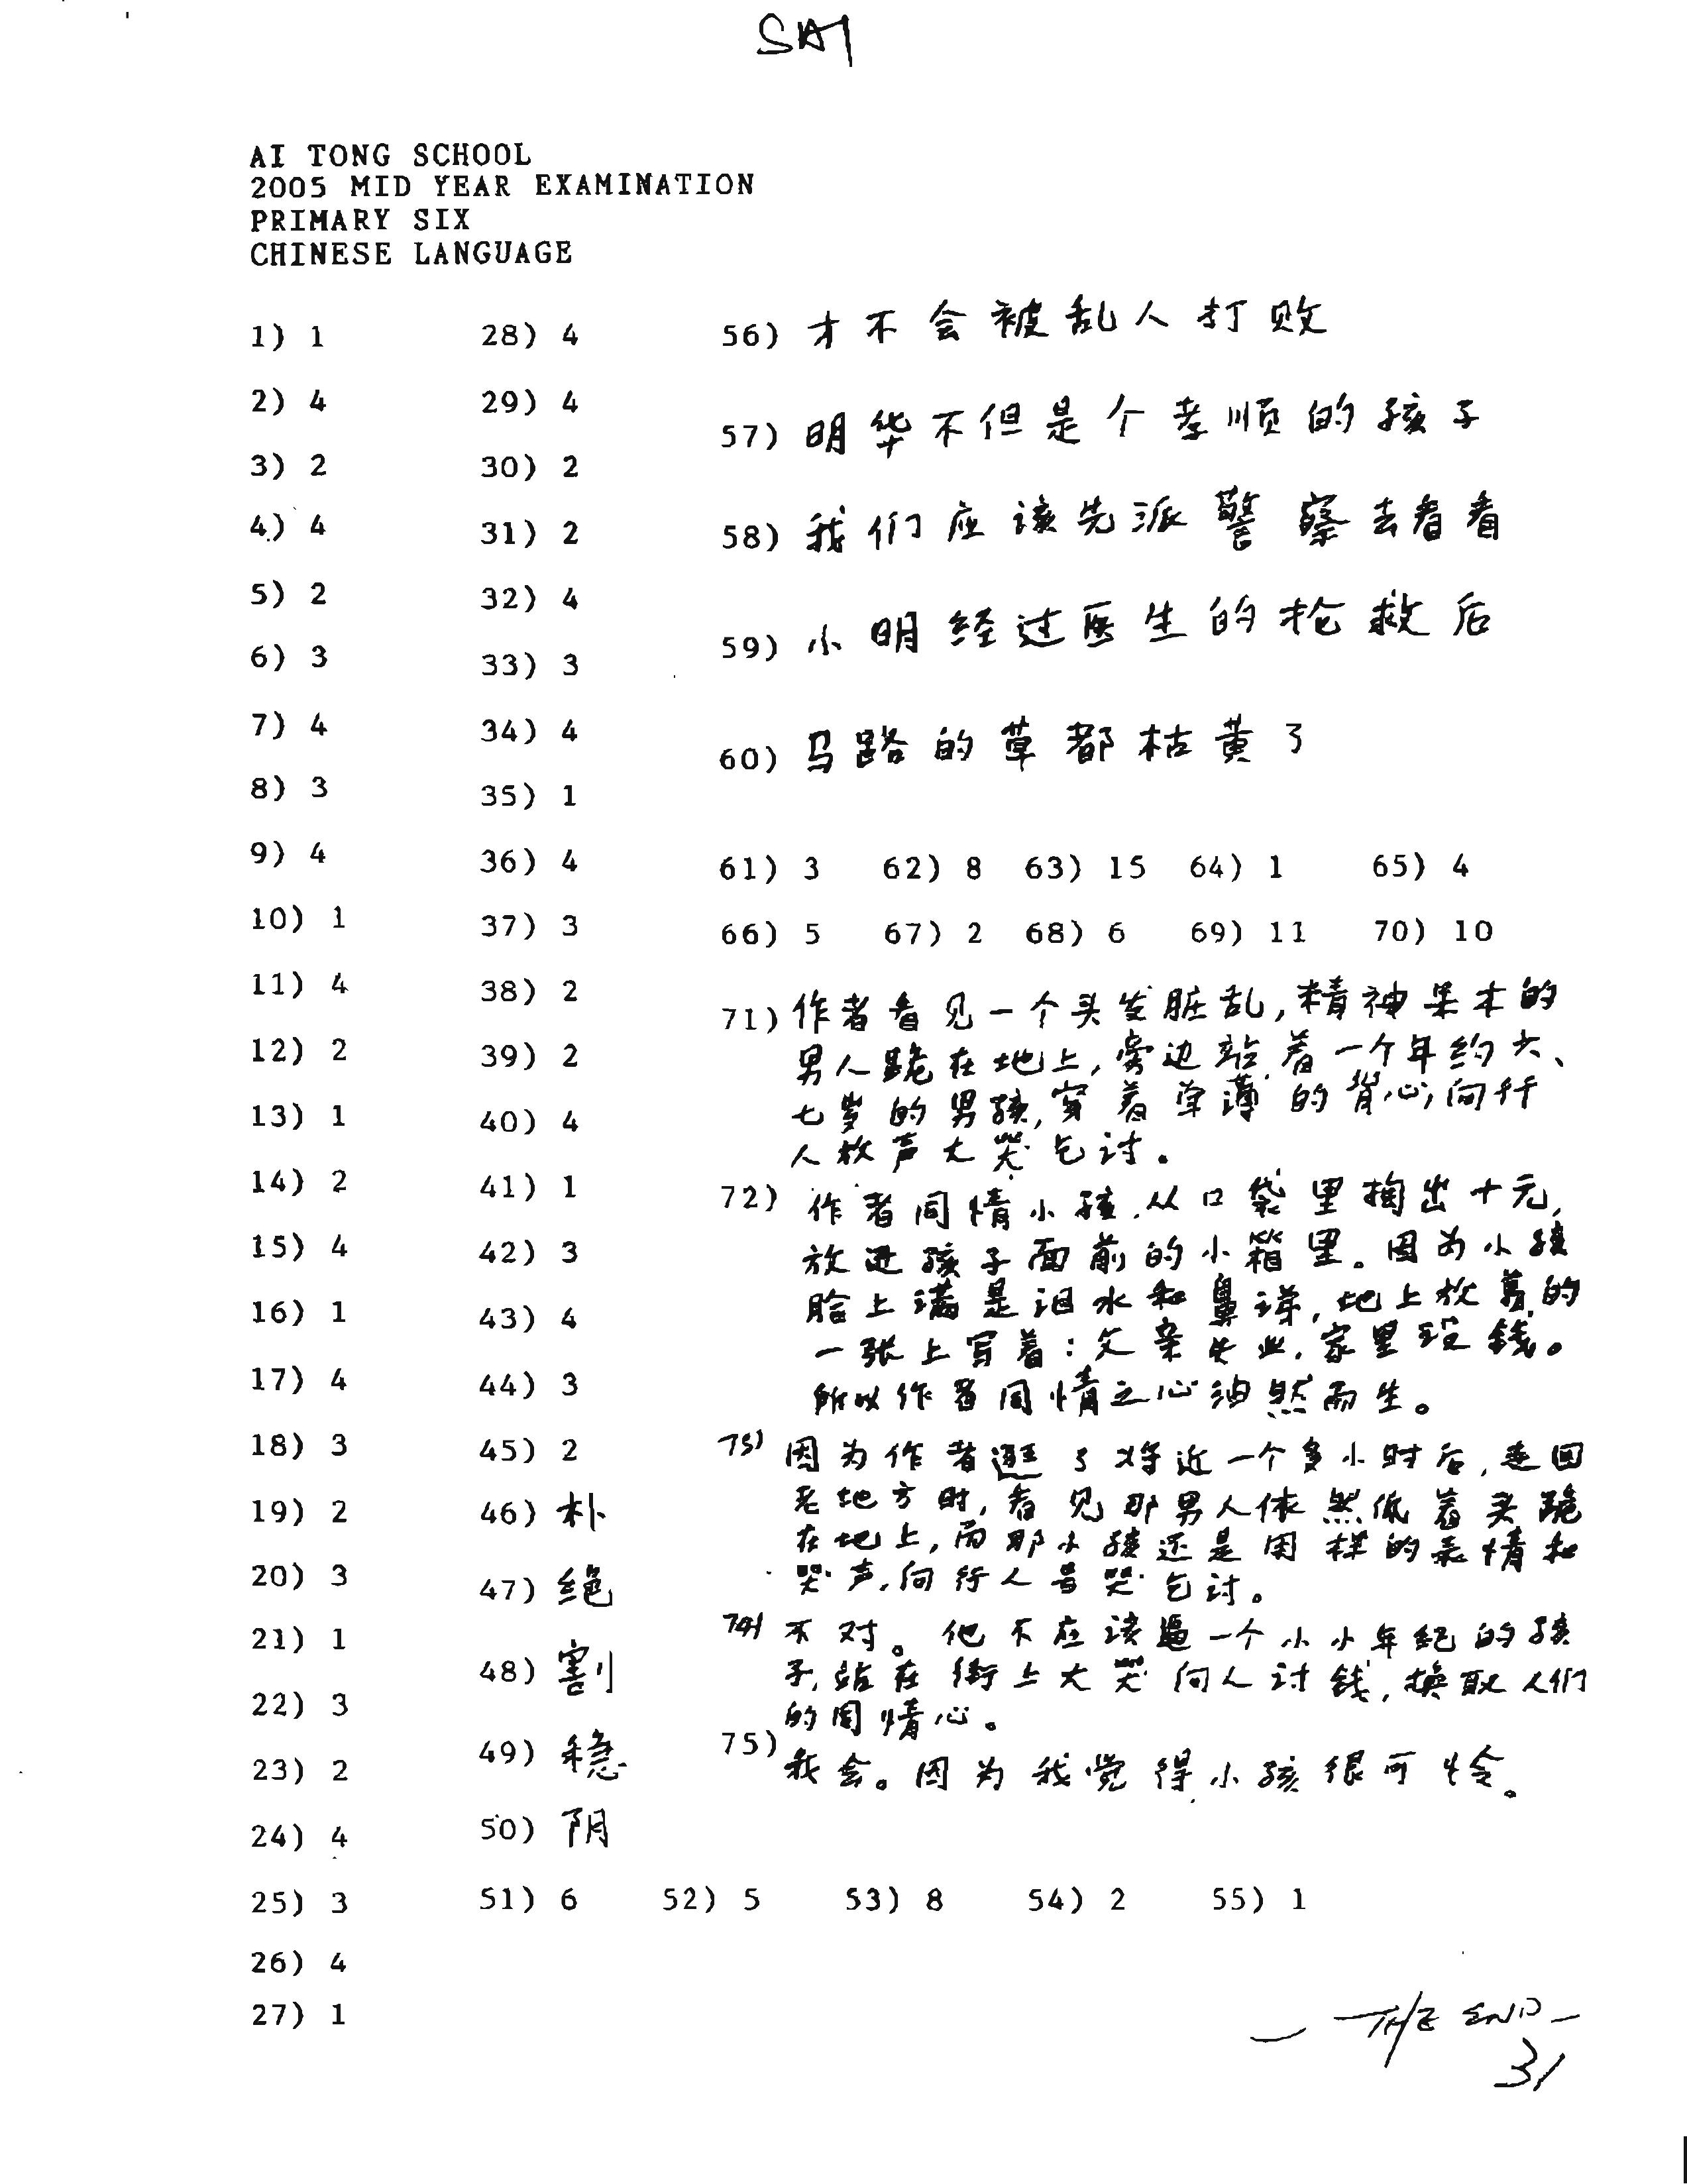 SA1
AI TONG SCHOOL
2005 MID YEAR EXAMINATION
PRIMARY SIX
CHINESE LANGUAGE
1) 1
2) 4
3) 2
4) 4
5) 2
6) 3
7) 4
8) 3
9) 4
10) 1
11) 4
12) 2
13) 1
14) 2
15) 4
16) 1
17) 4
18) 3
19) 2
20) 3
21) 1
22) 3
23) 2
24) 4
25) 3
26) 4
27) 1
28) 4
29) 4
30) 2
31) 2
32) 4
33) 3
34) 4
35) 1
36) 4
37) 3
38) 2
39) 2
40) 4
41) 1
42) 3
43) 4
44) 3
45) 2
46) 朴
47) 绝
48) 割
49) 稳
50) 阴
51) 6 52) 5 53) 8 54) 2 55) 1
56) 才不会被乱人打败
57) 明华不但是个孝顺的孩子
58) 我们应该先派警察去看看
59) 小明经过医生的抢救后
60) 马路的草都枯黄了
61) 3 62) 8 63) 15 64) 1 65) 4
66) 5 67) 2 68) 6 69) 11 70) 10
71) 作者看见一个头发脏乱,精神呆木的
男人跪在地上,旁边站着一个年约六、
七岁的男孩,穿着单薄的背心,向行
人放声大哭乞讨。
72) 作者同情小孩.从口袋里掏出十元,
放进孩子面前的小箱里。因为小孩
脸上满是泪水和鼻涕,地上放着的
一张上写着:父亲失业.家里没钱。
所以作者同情之心油然而生。
73) 因为作者逛了将近一个多小时后,走回
老地方时,看见那男人依然低着头跪
在地上,而那小孩还是同样的表情和
哭声.向行人号哭乞讨。
74) 不对。他不应该逼一个小小年纪的孩
子,站在街上大哭向人讨钱,换取人们
的同情心。
75) 我会。因为我觉得小孩很可怜。
— THE END —
31